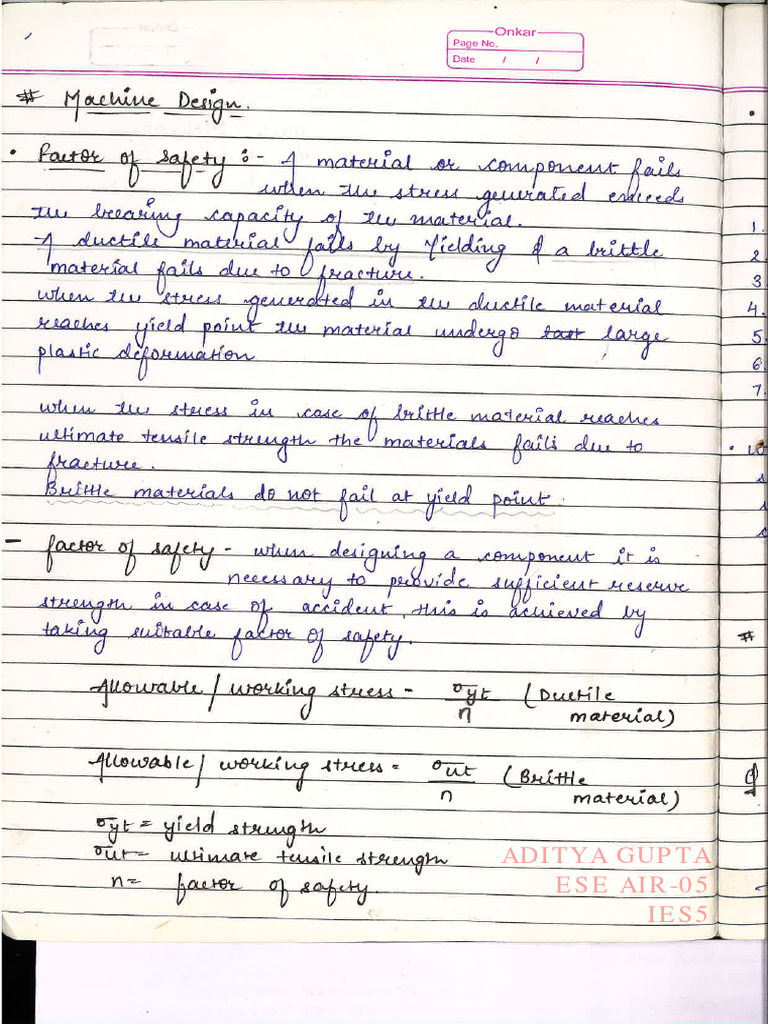 Onkar
Page No.
Date / /
# Machine Design.
• Factor of safety :- A material or component fails
when the stress generated exceeds
the bearing capacity of the material.
A ductile material fails by Yielding & a brittle
material fails due to fracture.
when the stress generated in the ductile material
reaches yield point the material undergo large
plastic deformation
when the stress in case of brittle material reaches
ultimate tensile strength the materials fails due to
fracture.
Brittle materials do not fail at yield point.
- factor of safety - when designing a component it is
necessary to provide sufficient reserve
strength in case of accident, this is achieved by
taking suitable factor of safety.
Allowable / working stress = σyt / n (Ductile
material)
Allowable / working stress = σut / n (Brittle
material)
σyt = yield strength
σut = ultimate tensile strength
n = factor of safety.
ADITYA GUPTA
ESE AIR-05
IES5
1.
2.
3.
4.
5.
6.
7.
#
Q